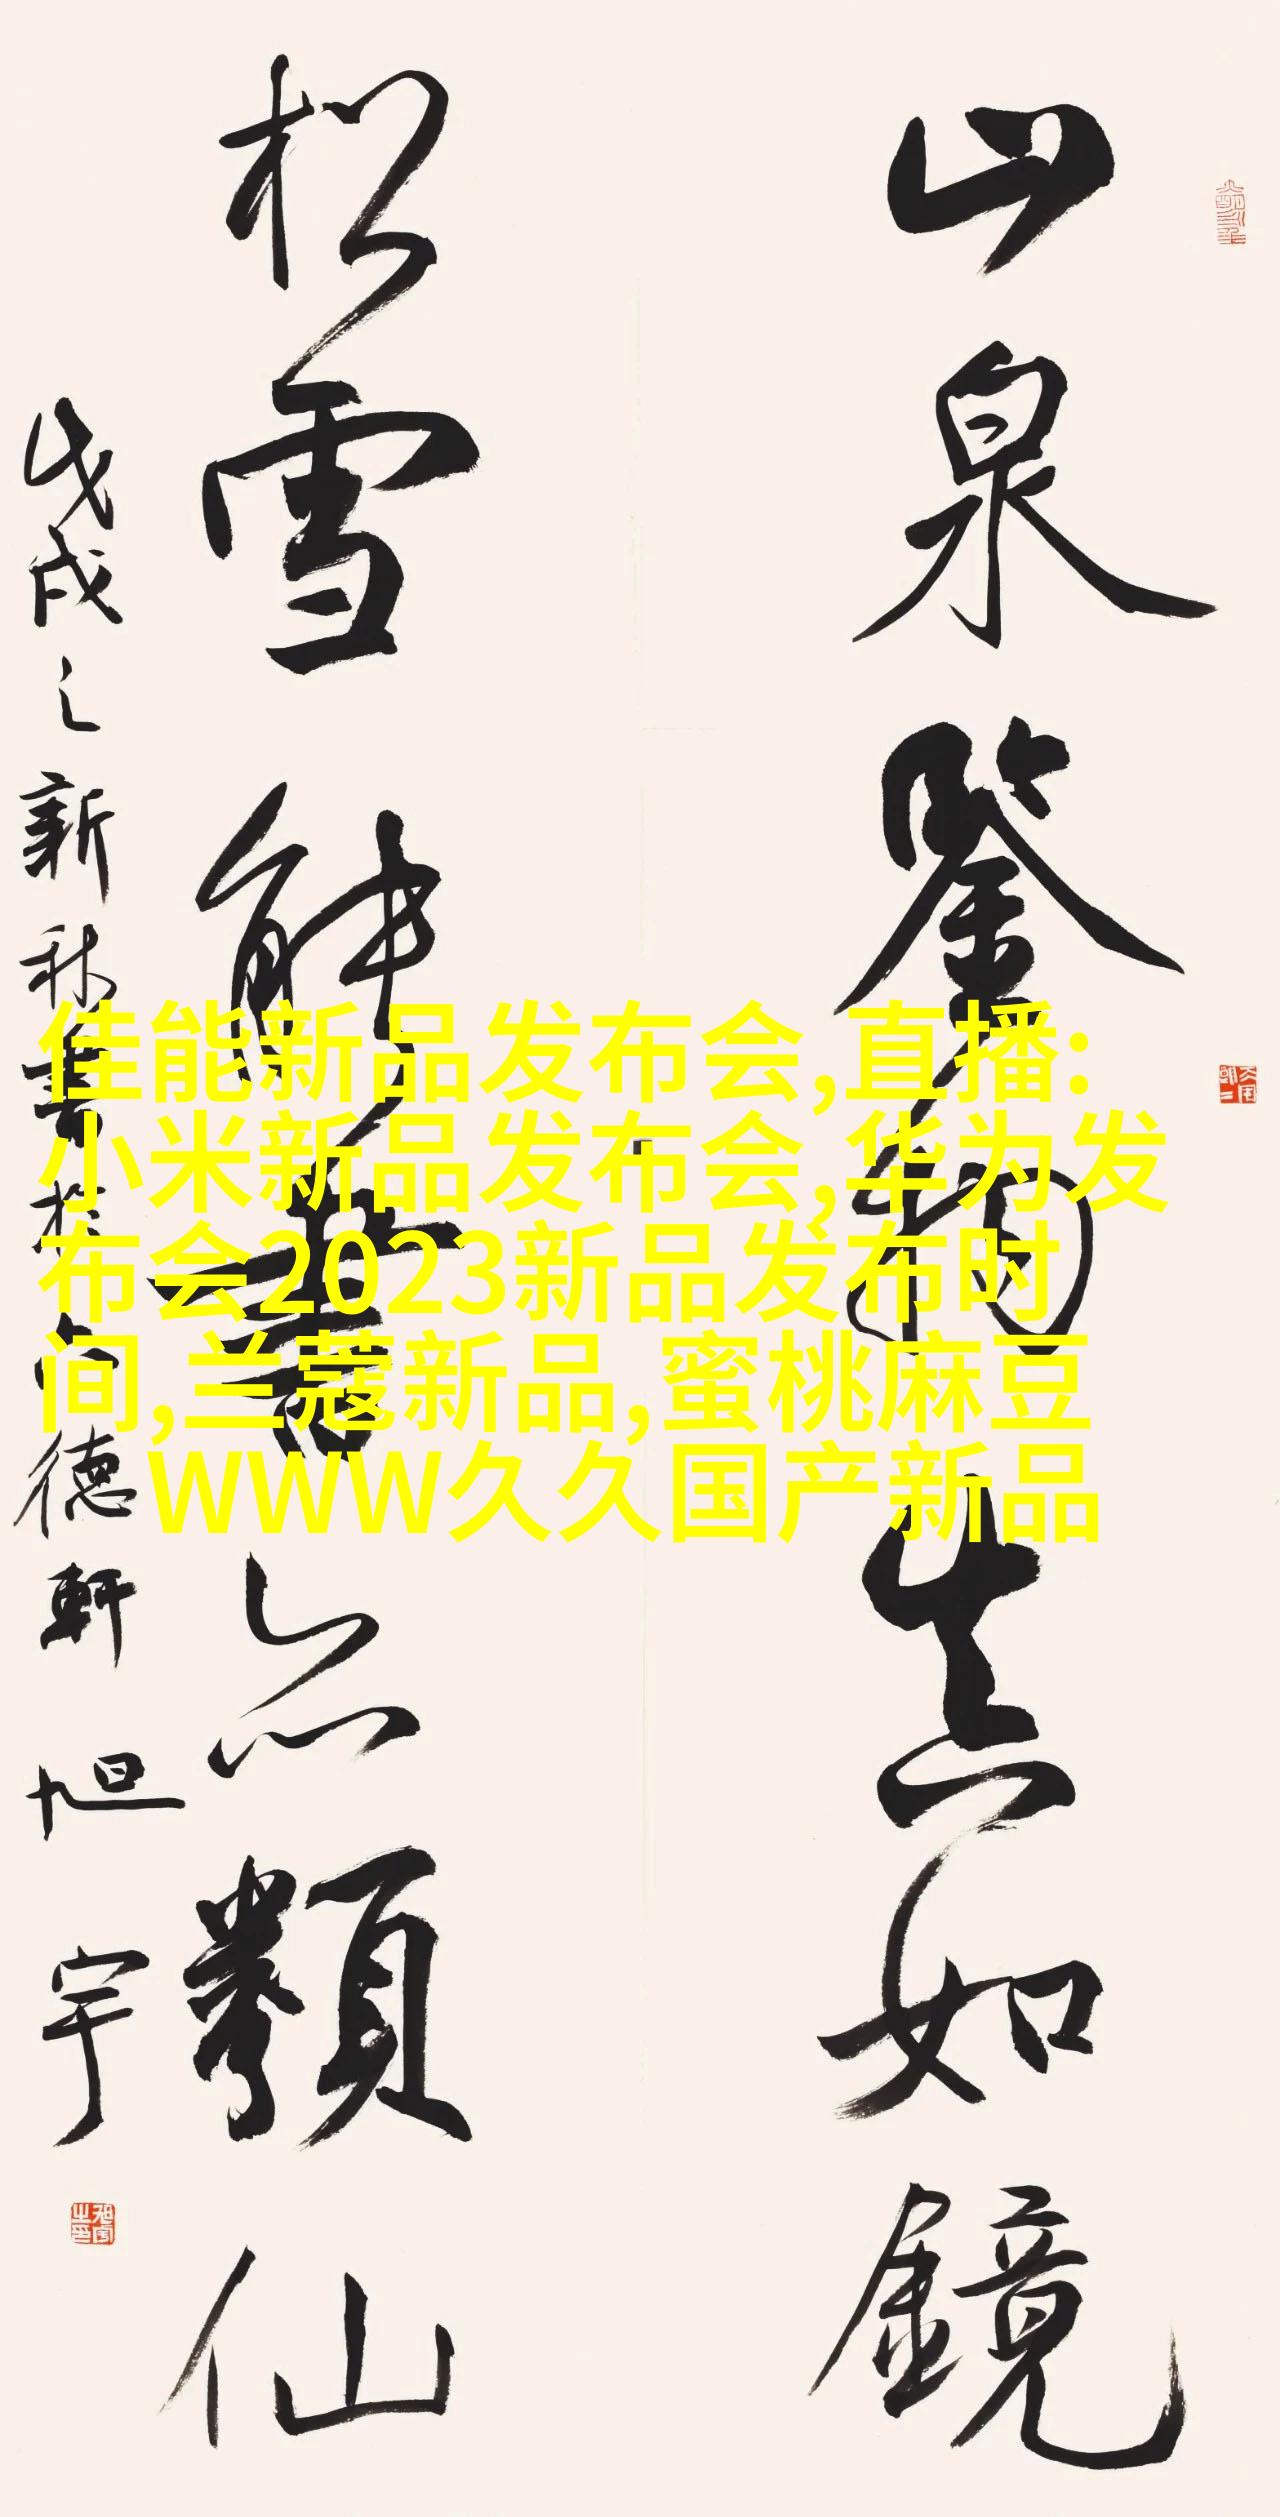 山泉鑒物真如鏡
松雪能亦類仙
戊戌之新秋德軒旭宇
佳能新品发布会,直播:
小米新品发布会,华为发
布会2023新品发布时
间,兰蔻新品,蜜桃麻豆
WWW久久国产新品